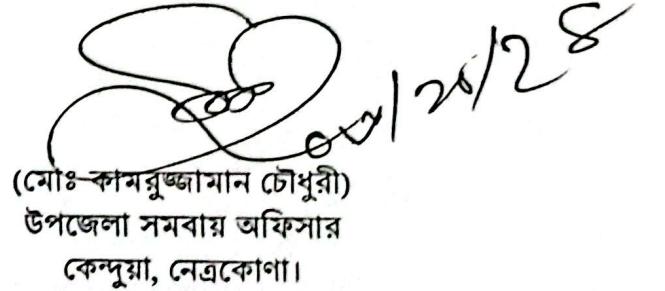 (মোঃ কামরুজ্জামান চৌধুরী)
উপজেলা সমবায় অফিসার
কেন্দুয়া, নেত্রকোণা।